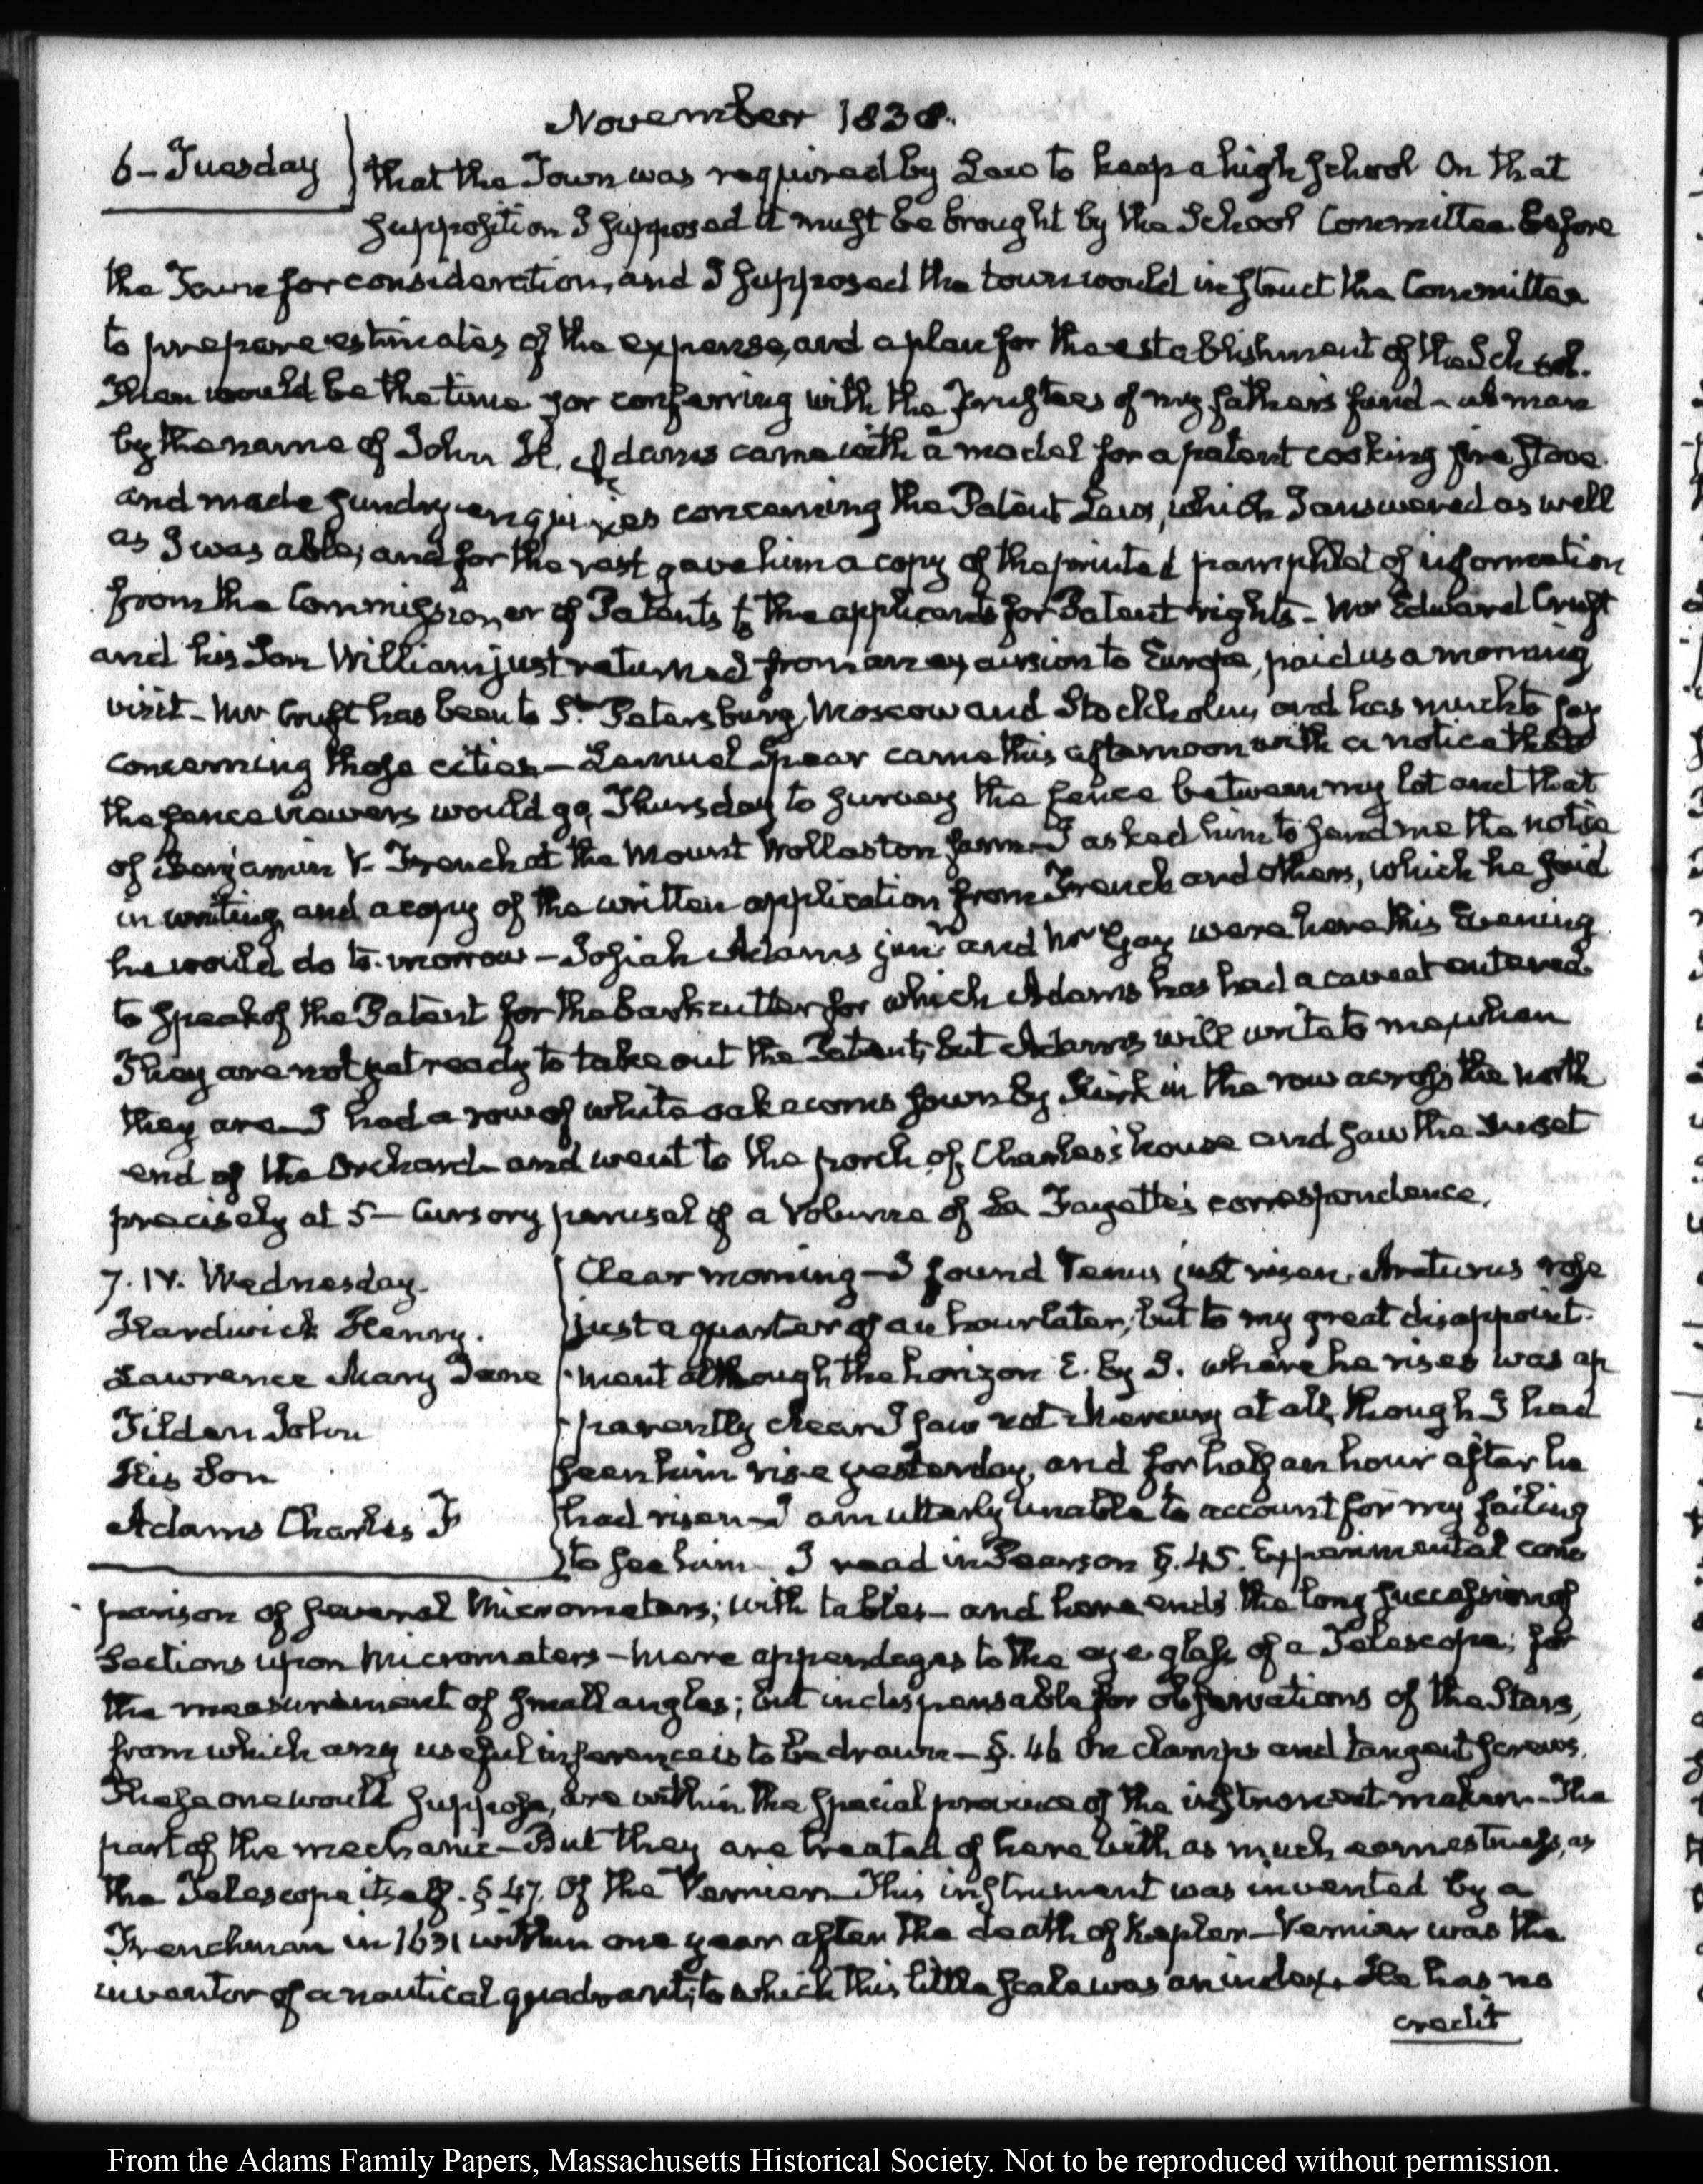 November 1838.
6 - Tuesday
that the Town was required by Law to keep a high School On that
supposition I supposed it must be brought by the School Committee before
the Town for consideration, and I supposed the town would instruct the Committee
to prepare estimates of the expense, and a plan for the establishment of the School.
Then would be the time for conferring with the Trustees of my father's fund - A man
by the name of John H. Adams came with a model for a patent cooking fire stove
and made sundry enquiries concerning the Patent Laws, which I answered as well
as I was able; and for the rest gave him a copy of the printed pamphlet of information
from the Commissioner of Patents to the applicants for Patent rights - Mr Edward Cruft
and his Son William just returned from an excursion to Europe, paid us a morning
visit - Mr Cruft has been to St. Petersburg, Moscow and Stockholm, and has much to say
concerning those cities - Lemuel Spear came this afternoon with a notice that
the fence viewers would go, Thursday to survey the fence between my lot and that
of Benjamin V. French at the Mount Wollaston farm - I asked him to send me the notice
in writing, and a copy of the written application from French and others, which he said
he would do to-morrow - Josiah Adams junr and Mr Gay were here this Evening
to speak of the Patent for the bark cutter for which Adams has had a caveat entered.
They are not yet ready to take out the Patent, but Adams will write to me, when
they are - I had a row of white oak acorns sown by Kirk in the row across the north
end of the Orchard - and went to the porch of Charles's house and saw the Sun set
precisely at 5 - Cursory perusal of a Volume of La Fayette's correspondence.
7. IV. Wednesday.
Hardwick Henry.
Lawrence Mary Jane
Tilden John
His Son
Adams Charles F
Clear morning - I found Venus just risen. Arcturus rose
just a quarter of an hour later; but to my great disappoint-
ment although the horizon E. by S. where he rises was ap
parently clear I saw not Mercury at all, though I had
seen him rise yesterday, and for half an hour after he
had risen - I am utterly unable to account for my failing
to see him - I read in Pearson §. 45. Experimental com
parison of several Micrometers; with tables - and here ends the long succession of
Sections upon Micrometers - mere appendages to the eye glass of a Telescope; for
the measurement of small angles; but indispensable for observations of the Stars,
from which any useful inference is to be drawn - §. 46 On clamps and tangent screws.
These one would suppose, are within the special province of the instrument maker - The
part of the mechanic - But they are treated of here with as much earnestness, as
the Telescope itself. § 47. Of the Vernier - This instrument was invented by a
Frenchman in 1631 within one year after the death of Kepler - Vernier was the
inventor of a nautical quadrant; to which this little scale was an index. He has no
credit
From the Adams Family Papers, Massachusetts Historical Society. Not to be reproduced without permission.